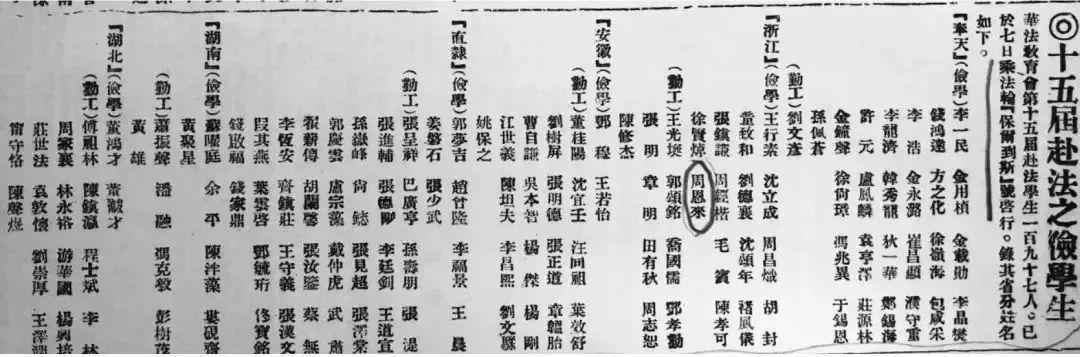 ◎十五屆赴法之儉學生
華法教育會第十五屆赴法學生一百九十七人。已
於七日乘法輪『保爾到斯』號啓行。錄其省分姓名
如下。
『奉天』(儉學) 李一民 金用楨 金載勛 李晶爕
錢鴻逵 方之化 徐嶺海 包咸杲
李浩 金永潞 崔昌顯 濮守重
李龍濟 韓秀龍 狄一華 鄭錫海
許元 盧鳳麟 袁亭澤 莊源林
金鐘聲 徐尚璋 馮兆異 于錫恩
孫佩蒼
(勤工) 劉文彥
『浙江』(儉學) 王行素 沈立成 周昌熾 胡封
童敖和 劉德襄 沈頌年 褚鳳儀
張鎮謙 周經楷 毛寶 陳孝可
徐賢焯 周恩來
(勤工) 王光煐 郭頌銘 喬國儒 鄧孝勤
張明 章明 田有秋 周志恕
陳修杰
『安徽』(儉學) 鄧穆 王若怡
(勤工) 董桂陽 沈宜壬 汪回祖 葉效舒
劉樹屏 張明德 張正道 章韞胎
曹自謙 吳本智 楊傑 楊剛
江世義 陳坦夫 李昌熙 劉文驥
姚保之
『直隸』(儉學) 郭夢吉 趙曾隆 李福景 王晨
姜磐石 張少武
(勤工) 張呈祥 巴廣亭 孫壽朋 張湜
張進輔 張德剛 李廷釗 王道宣
孫嶽峰 尙 張見超 張澤棠
郭慶雲 盧宗藻 戴仲虎 武肅
張薪傳 胡蘭馨 張汝鑒 蔡無
李恆安 齊鎮莊 王守義 張漢文
段其燕 葉雲啓 鄧毓珩 佟寶銘
錢啟福 錢家鼎
『湖南』(儉學) 蘇曜庭 余平 陳泮藻 葉硯齋
黃聚星
(勤工) 蕭振聲 潘融 馮克毅 彭樹
黃雄
『湖北』(儉學) 董鴻才 董猷才
(勤工) 傅祖林 陳鎮瀛 程士斌 李林
周家襄 林永裕 游華國 楊興培
莊世法 袁敦懷 劉崇厚 王澤
甯守恪 陳聲煜